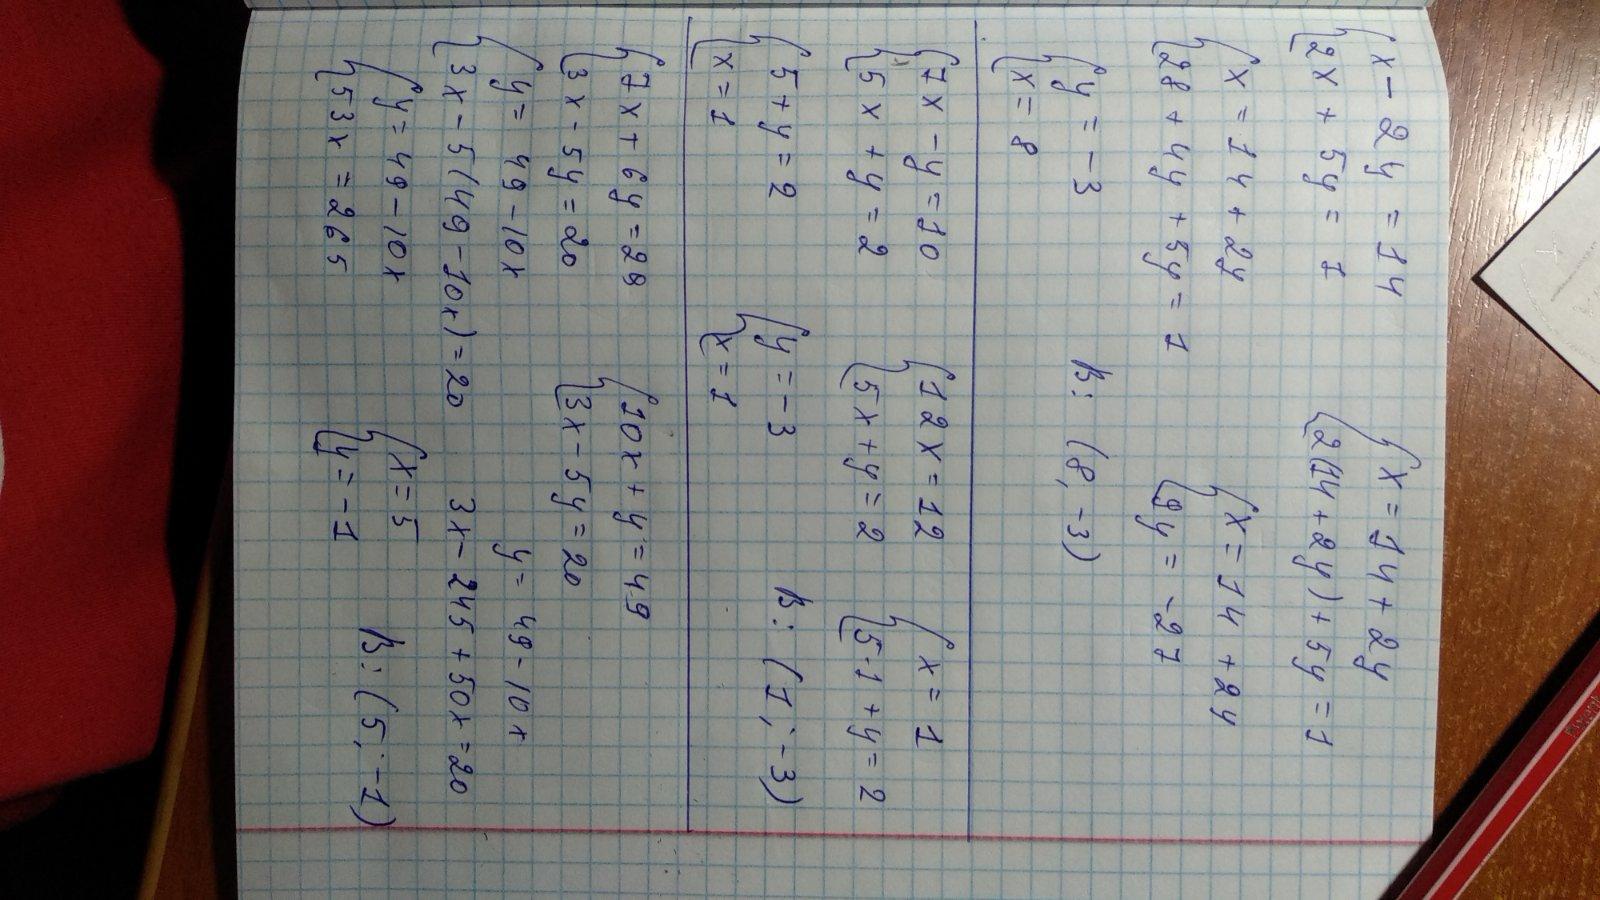 { x - 2y = 14
{ 2x + 5y = 1
{ x = 14 + 2y
{ 2(14 + 2y) + 5y = 1
{ x = 14 + 2y
{ 28 + 4y + 5y = 1
{ x = 14 + 2y
{ 9y = -27
{ y = -3
{ x = 8
В: (8, -3)
{ 7x - y = 10
{ 5x + y = 2
{ 12x = 12
{ 5x + y = 2
{ x = 1
{ 5·1 + y = 2
{ 5 + y = 2
{ x = 1
{ y = -3
{ x = 1
В: (1; -3)
{ 7x + 6y = 29
{ 3x - 5y = 20
{ 10x + y = 49
{ 3x - 5y = 20
{ y = 49 - 10x
{ 3x - 5(49 - 10x) = 20
y = 49 - 10x
3x - 245 + 50x = 20
{ y = 49 - 10x
{ 53x = 265
{ x = 5
{ y = -1
В: (5; -1)